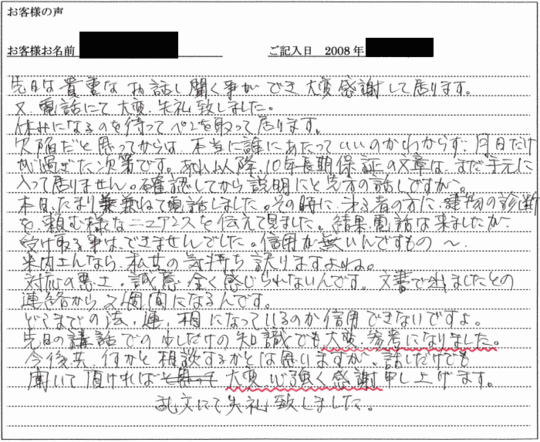 お客様の声
お客様お名前 ご記入日 2008年
先日は貴重なお話し聞く事ができ大変感謝して居ります。
又、電話にて大変失礼致しました。
休みになるのを待ってペンを取って居ります。
欠陥だと思ってからは、本当に誰にあたっていいのかわからず、月日だけ
が過ぎた次第です。あれ以降10年長期保証の文章は、まだ手元に
入って居りません。確認してから説明にと先方の話しですが〜。
本日、たまり兼ねて電話しました。その時に、ある者の方に、建物の診断
を頼む様なニュアンスを伝えて見ました。結果電話は来ましたが、
受け取る事はできませんでした。信用が無いんですもの〜
米内さんなら、私共の気持ち訳りますよね。
対応の悪さ、誠意全く感じられないんです。文書で出しましたとの
連絡から2週間になるんです。
どこまでの法、違、相になっているのか信用できないですよ。
先日の講話での少しだけの知識でも大変、参考になりました。
今後共、何かと相談するかとは思いますが、話しだけでも
聞いて頂ければ 大変心強く感謝申し上げます。
乱文にて失礼致しました。